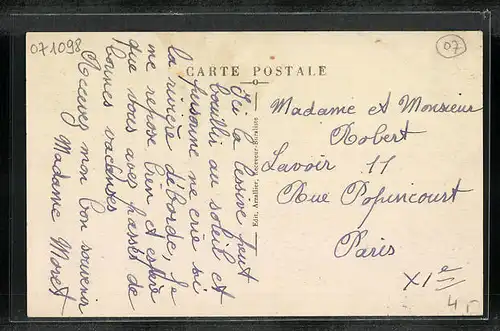 071098
07
CARTE POSTALE
Ici la lessive peut
bouillir au soleil et
personne ne crie si
la rivière déborde, je
me repose bien et espère
que vous avez passés de
bonnes vacances
Recevez mon bon souvenir
Madame Moret
Edit.
Madame et Monsieur
Robert
Lavoir 11
Rue Popincourt
Paris
XIe
4